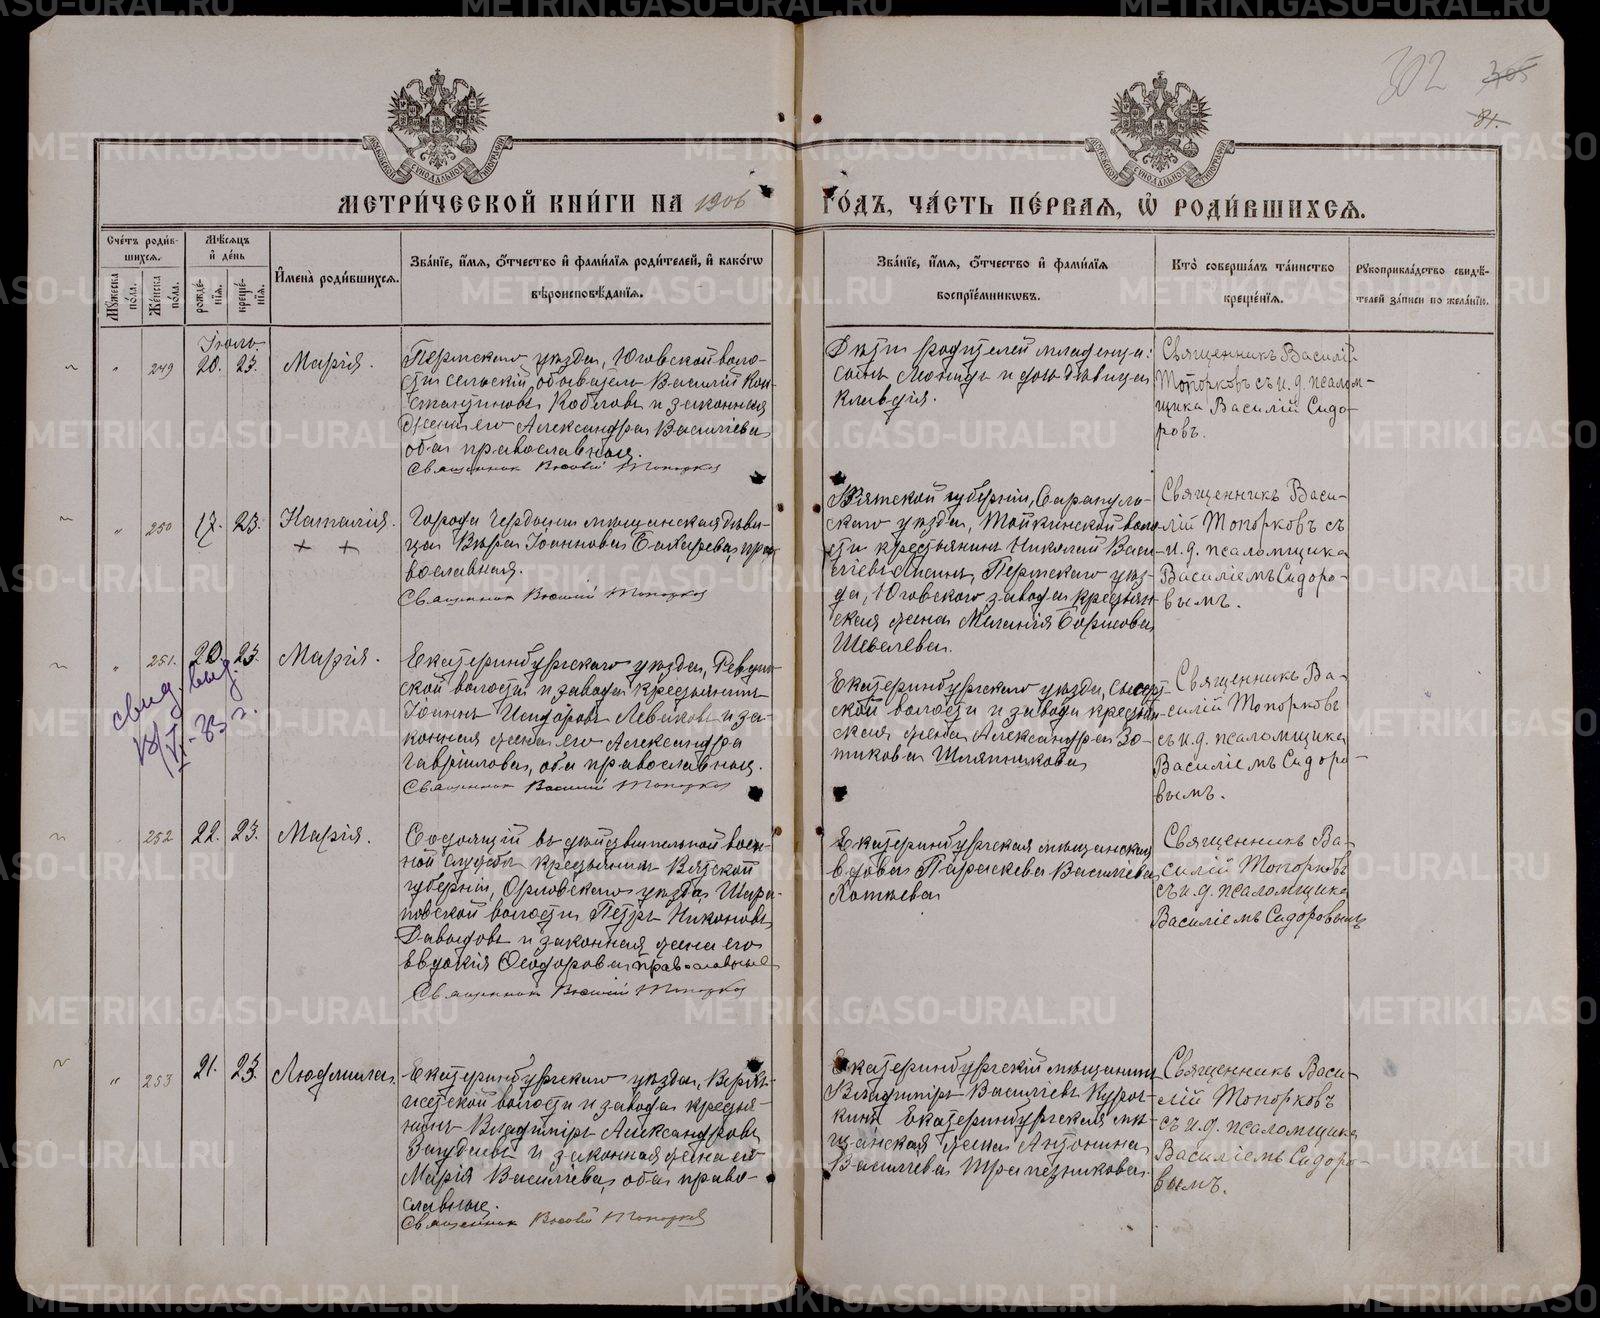 302 305
81.
МЕТРИ́ЧЕСКОЙ КНИ́ГИ НА 1906 ГО́ДЪ, ЧА́СТЬ ПЕ́РВАЯ, Ѡ РОДИ́ВШИХСЯ.
Сче́тъ роди́вшихся.
Мꙋ́жеска по́ла.
Же́нска по́ла.
Мѣ́сяцъ и҆ де́нь
рожде́нїя.
креще́нїя.
И҆мена̀ роди́вшихся.
Зва́нїе, и҆́мя, ѻ҆́тчество и҆ фами́лїя роди́телей, и҆ како́гѡ
вѣроисповѣ́данїя.
Зва́нїе, и҆́мя, ѻ҆́тчество и҆ фами́лїя
воспрїе́мникѡвъ.
Кто̀ соверша́лъ та́инство
креще́нїя.
Рꙋкоприкла́дство свидѣ́-
телей за́писи по жела́нїю.
Іюль
" 249 20. 23. Марія.
Пермскаго уѣзда, Юговской воло-
сти сельскій обыватель Василій Кон-
стантиновъ Кобелевъ и законная
жена его Александра Васильева,
оба православные.
Священник Василій Топорков
Дѣти родителей младенца:
сынъ Леонидъ и дочь дѣвица
Клавдія.
Священникъ Василій
Топорковъ съ и. д. псалом-
щика Василій Сидо-
ровъ.
" 250 17. 23. Наталія.
Города Чердыни мѣщанская дѣви-
ца Вѣра Іоаннова Бахарева, пра-
вославная.
Священник Василій Топорков
Вятской губерніи, Сарапуль-
скаго уѣзда, Мойкинской воло-
сти крестьянинъ Николай Васи-
льевъ Пермскаго уѣз-
да, Юговского завода крестьян-
ская жена Меланія Борисова
Шевелева.
Священникъ Васи-
лій Топорковъ съ
и. д. псаломщика
Василіемъ Сидоро-
вымъ.
" 251. 20. 23. Марія.
свид. выд.
18/VI-83 г.
Екатеринбургскаго уѣзда, Ревдин-
ской волости и завода крестьянинъ
Іоаннъ Исидоровъ Левиковъ и за-
конная жена его Александра
Гавріилова, оба православные.
Священник Василій Топорков
Екатеринбургскаго уѣзда, Сысерт-
ской волости и завода крестьян-
ская жена Александра Зо-
тикова Шляпникова
Священникъ Ва-
силій Топорковъ
съ и. д. псаломщика
Василіемъ Сидоро-
вымъ.
252 22. 23. Марія.
Состоящій въ дѣйствительной воен-
ной службѣ крестьянинъ Вятской
губерніи, Орловскаго уѣзда Шара-
повской волости Петръ Никоновъ
Давыдовъ и законная жена его
Евдокія Ѳеодорова православные
Священник Василій Топорков
Екатеринбургская мѣщанская
вдова Параскева Васильева
Хотьева
Священникъ Ва-
силій Топорковъ
съ и. д. псаломщика
Василіемъ Сидоровымъ
" 253 21. 23. Людмила.
Екатеринбургскаго уѣзда, Верхъ-
исетской волости и завода крестья-
нинъ Владиміръ Александровъ
и законная жена его
Марія Васильева, оба право-
славные.
Священник Василій Топорков
Екатеринбургскій мѣщанинъ
Владиміръ Васильевъ Куроч-
кинъ Екатеринбургская мѣ-
щанская жена Антонина
Васильева Трапезникова.
Священникъ Васи-
лій Топорковъ
съ и. д. псаломщика
Василіемъ Сидоро-
вымъ.
METRIKI.GASO-URAL.RU